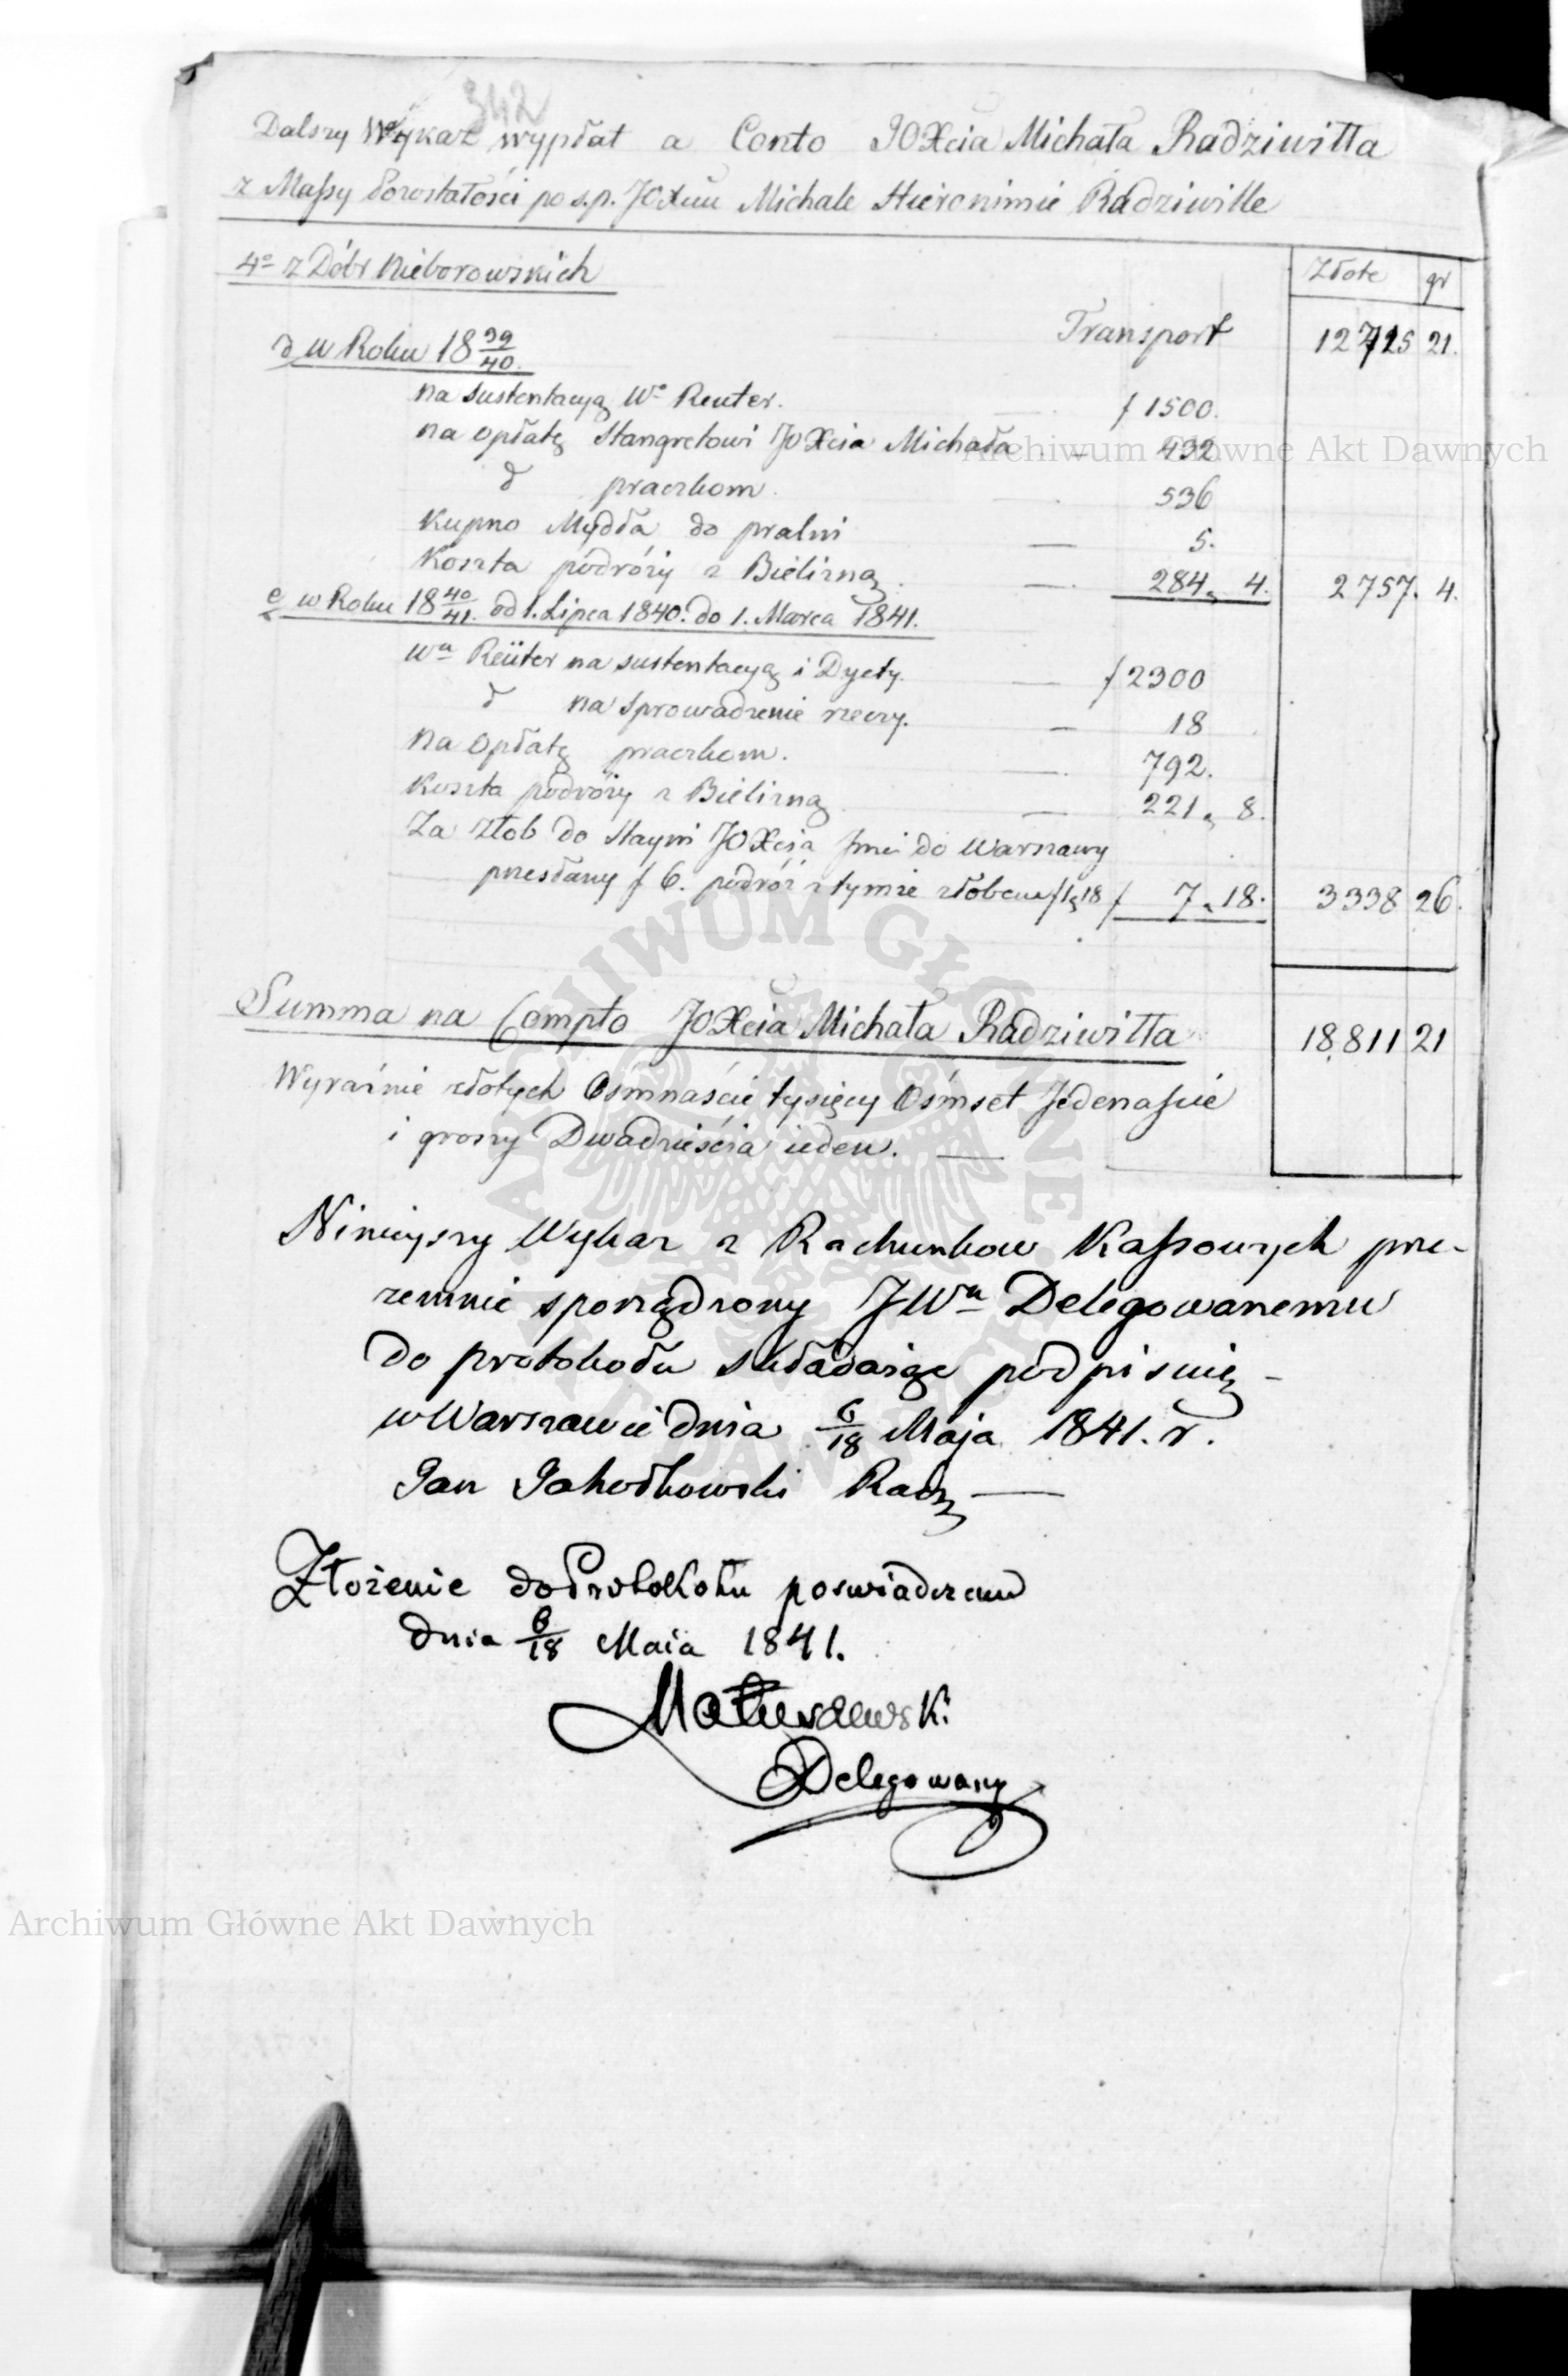 342
Dalszy Wykaz wypłat a Conto JOXcia Michała Radziwiłła
z Massy Pozostałości po s.p. JOXciu Michale Hieronimie Radziwille
4o z Dóbr Nieborowskich
Złote gr
Transport 12715 21.
d w Roku 18 39/40.
na sustentacyą We Reuter. f 1500.
na opłatę Stangretowi JOXcia Michała — 432
d praczkom. — 536
Kupno Mydła do pralni — 5.
Koszta podróży z Bielizną. — 284 „ 4. 2757. 4.
e w Roku 18 40/41. od 1. Lipca 1840. do 1. Marca 1841.
Wa Reüter na sustentacyą i Dyety. — f 2300
d na sprowadzenie rzeczy. — 18
na Opłatę praczkom. — 792.
Koszta podróży z Bielizną — 221 „ 8.
Za Żłob do Stayni JOXcia Jmci do Warszawy
przesłany f 6. podróż z tymże żłobem f 1 „ 18 f 7 „ 18. 3338 26.
Summa na Compto JOXcia Michała Radziwiłła 18,811 21
Wyraźnie złotych Ośmnaście tysięcy Ośmset Jedenaście
i groszy Dwadzieścia ieden. —
Ninieyszy Wykaz z Rachunkow Kassowych prze-
zemnie sporządzony JWu Delegowanemu
do protokołu składaiąc podpisuię –
w Warszawie dnia 6/18 Maja 1841. r.
Jan Jakodkowski Radz —
Złożenie do Protokołu poswiadczam
dnia 6/18 Maia 1841.
Matuszewski
Delegowany
Archiwum Główne Akt Dawnych
Archiwum Główne Akt Dawnych
ARCHIWUM GŁÓWNE AKT DAWNYCH